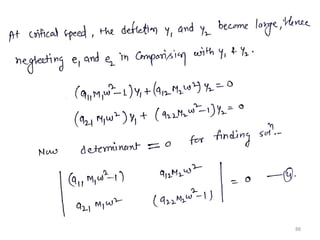 At critical speed, the deflection y₁ and y₂ become large, Hence
neglecting e₁ and e₂ in comparision with y₁ & y₂.
(a₁₁M₁ω²-1)y₁+(a₁₂M₂ω²)y₂=0
(a₂₁M₁ω²)y₁ + (a₂₂M₂ω²-1)y₂=0
Now determinant = 0 for finding solⁿ-
| (a₁₁M₁ω²-1) a₁₂M₂ω² |
| a₂₁M₁ω² (a₂₂M₂ω²-1) | = 0 —(4).
88